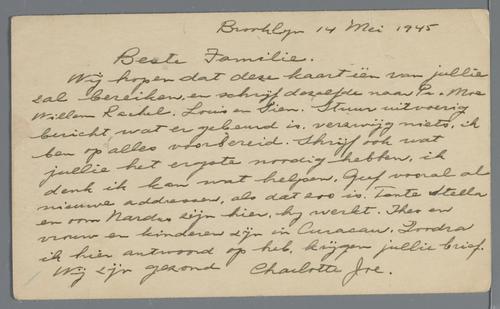 Brooklyn 14 Mei 1945
Beste Familie.
Wij hopen dat deze kaart één van jullie
zal bereiken, en schrijf dezelfde naar Pr. Moe
Willem Rachel. Louis en Sien. Stuur uitvoerig
bericht wat er gebeurd is, verzwijg niets, ik
ben op alles voorbereid. Shrijf ook wat
jullie het ergste noodig hebben, ik
denk ik kan wat helpen. Geef vooral al
nieuwe addressen, als dat zoo is. Tante Stella
en oom Nardus zijn hier, hij werkt. Theo en
vrouw en kinderen zijn in Curacau. Zoodra
ik hier antwoord op heb, krijgen jullie brief.
Wij zijn gezond Charlotte Joe.